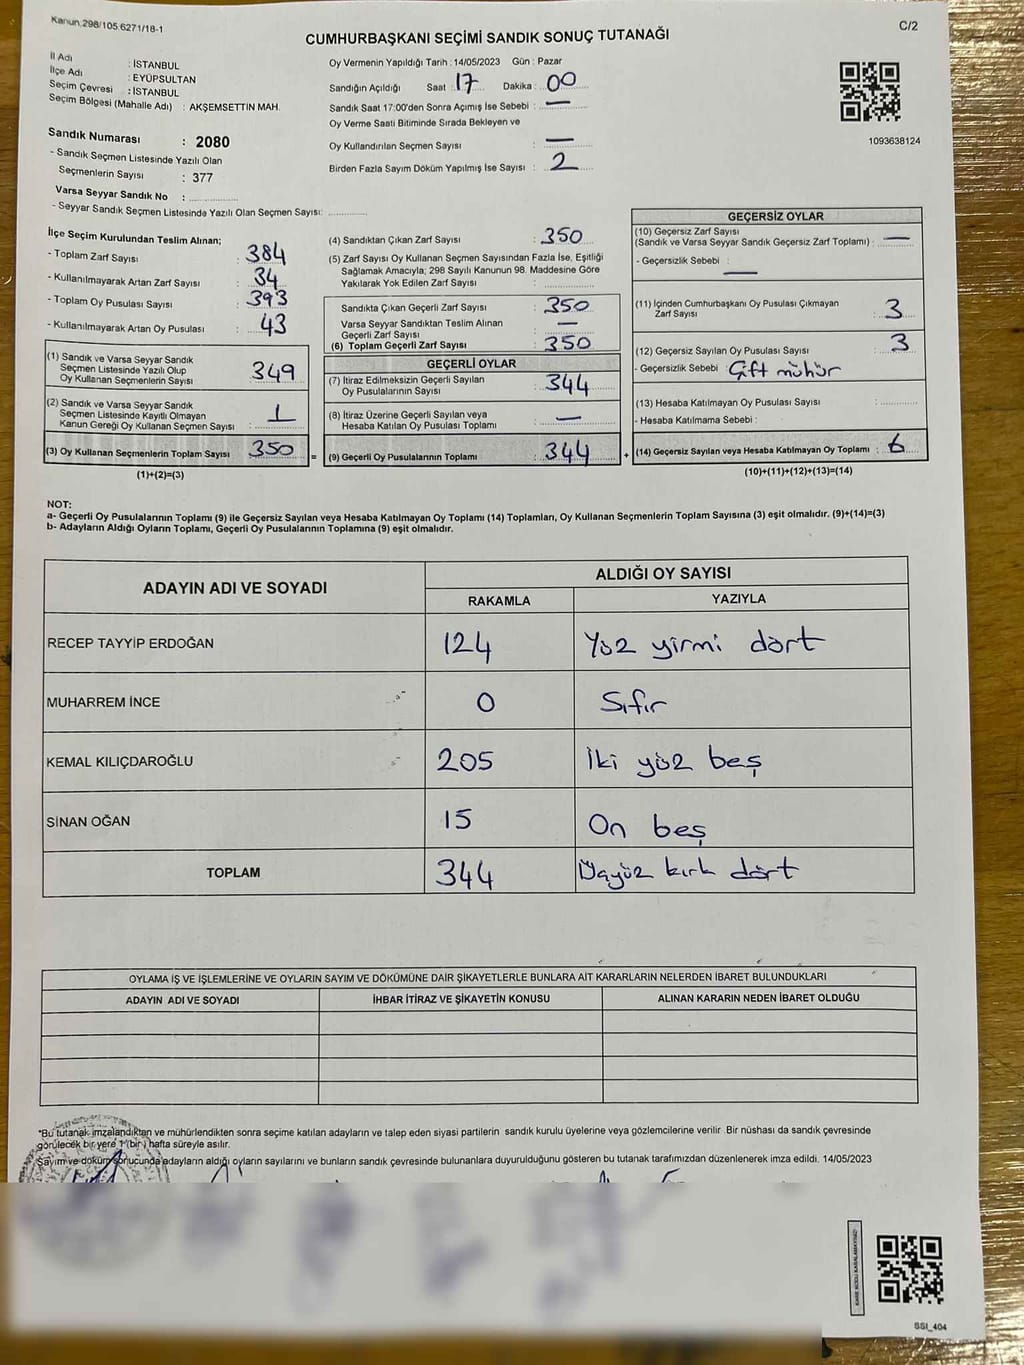 Kanun.298/105.6271/18-1
C/2
CUMHURBAŞKANI SEÇİMİ SANDIK SONUÇ TUTANAĞI
İl Adı : İSTANBUL
İlçe Adı : EYÜPSULTAN
Seçim Çevresi : İSTANBUL
Seçim Bölgesi (Mahalle Adı) : AKŞEMSETTİN MAH.
Sandık Numarası : 2080
- Sandık Seçmen Listesinde Yazılı Olan
Seçmenlerin Sayısı : 377
Varsa Seyyar Sandık No :
- Seyyar Sandık Seçmen Listesinde Yazılı Olan Seçmen Sayısı:
Oy Vermenin Yapıldığı Tarih : 14/05/2023 Gün : Pazar
Sandığın Açıldığı Saat : 17 Dakika : 00
Sandık Saat 17:00'den Sonra Açımış İse Sebebi : —
Oy Verme Saati Bitiminde Sırada Bekleyen ve
Oy Kullandırılan Seçmen Sayısı : —
Birden Fazla Sayım Döküm Yapılmış İse Sayısı : 2
1093638124
İlçe Seçim Kurulundan Teslim Alınan;
- Toplam Zarf Sayısı : 384
- Kullanılmayarak Artan Zarf Sayısı : 34
- Toplam Oy Pusulası Sayısı : 393
- Kullanılmayarak Artan Oy Pusulası : 43
(1) Sandık ve Varsa Seyyar Sandık
Seçmen Listesinde Yazılı Olup
Oy Kullanan Seçmenlerin Sayısı : 349
(2) Sandık ve Varsa Seyyar Sandık
Seçmen Listesinde Kayıtlı Olmayan
Kanun Gereği Oy Kullanan Seçmen Sayısı : 1
(3) Oy Kullanan Seçmenlerin Toplam Sayısı : 350
(1)+(2)=(3)
(4) Sandıktan Çıkan Zarf Sayısı : 350
(5) Zarf Sayısı Oy Kullanan Seçmen Sayısından Fazla İse, Eşitliği
Sağlamak Amacıyla; 298 Sayılı Kanunun 98. Maddesine Göre
Yakılarak Yok Edilen Zarf Sayısı :
Sandıkta Çıkan Geçerli Zarf Sayısı : 350
Varsa Seyyar Sandıktan Teslim Alınan
Geçerli Zarf Sayısı : —
(6) Toplam Geçerli Zarf Sayısı : 350
GEÇERLİ OYLAR
(7) İtiraz Edilmeksizin Geçerli Sayılan
Oy Pusulalarının Sayısı : 344
(8) İtiraz Üzerine Geçerli Sayılan veya
Hesaba Katılan Oy Pusulası Toplamı : —
= (9) Geçerli Oy Pusulalarının Toplamı : 344 +
GEÇERSİZ OYLAR
(10) Geçersiz Zarf Sayısı
(Sandık ve Varsa Seyyar Sandık Geçersiz Zarf Toplamı) : —
- Geçersizlik Sebebi : —
(11) İçinden Cumhurbaşkanı Oy Pusulası Çıkmayan
Zarf Sayısı : 3
(12) Geçersiz Sayılan Oy Pusulası Sayısı : 3
- Geçersizlik Sebebi : Çift mühür
(13) Hesaba Katılmayan Oy Pusulası Sayısı :
- Hesaba Katılmama Sebebi :
(14) Geçersiz Sayılan veya Hesaba Katılmayan Oy Toplamı : 6
(10)+(11)+(12)+(13)=(14)
NOT:
a- Geçerli Oy Pusulalarının Toplamı (9) ile Geçersiz Sayılan veya Hesaba Katılmayan Oy Toplamı (14) Toplamları, Oy Kullanan Seçmenlerin Toplam Sayısına (3) eşit olmalıdır. (9)+(14)=(3)
b- Adayların Aldığı Oyların Toplamı, Geçerli Oy Pusulalarının Toplamına (9) eşit olmalıdır.
ADAYIN ADI VE SOYADI
ALDIĞI OY SAYISI
RAKAMLA YAZIYLA
RECEP TAYYİP ERDOĞAN 124 Yüz yirmi dört
MUHARREM İNCE 0 Sıfır
KEMAL KILIÇDAROĞLU 205 İki yüz beş
SİNAN OĞAN 15 On beş
TOPLAM 344 Üçyüz kırk dört
OYLAMA İŞ VE İŞLEMLERİNE VE OYLARIN SAYIM VE DÖKÜMÜNE DAİR ŞİKAYETLERLE BUNLARA AİT KARARLARIN NELERDEN İBARET BULUNDUKLARI
ADAYIN ADI VE SOYADI İHBAR İTİRAZ VE ŞİKAYETİN KONUSU ALINAN KARARIN NEDEN İBARET OLDUĞU
*Bu tutanak imzalandıktan ve mühürlendikten sonra seçime katılan adayların ve talep eden siyasi partilerin sandık kurulu üyelerine veya gözlemcilerine verilir .Bir nüshası da sandık çevresinde
görülecek bir yere 1 (bir) hafta süreyle asılır.
Sayım ve döküm sonucunda adayların aldığı oyların sayılarını ve bunların sandık çevresinde bulunanlara duyurulduğunu gösteren bu tutanak tarafımızdan düzenlenerek imza edildi. 14/05/2023
SSI_404